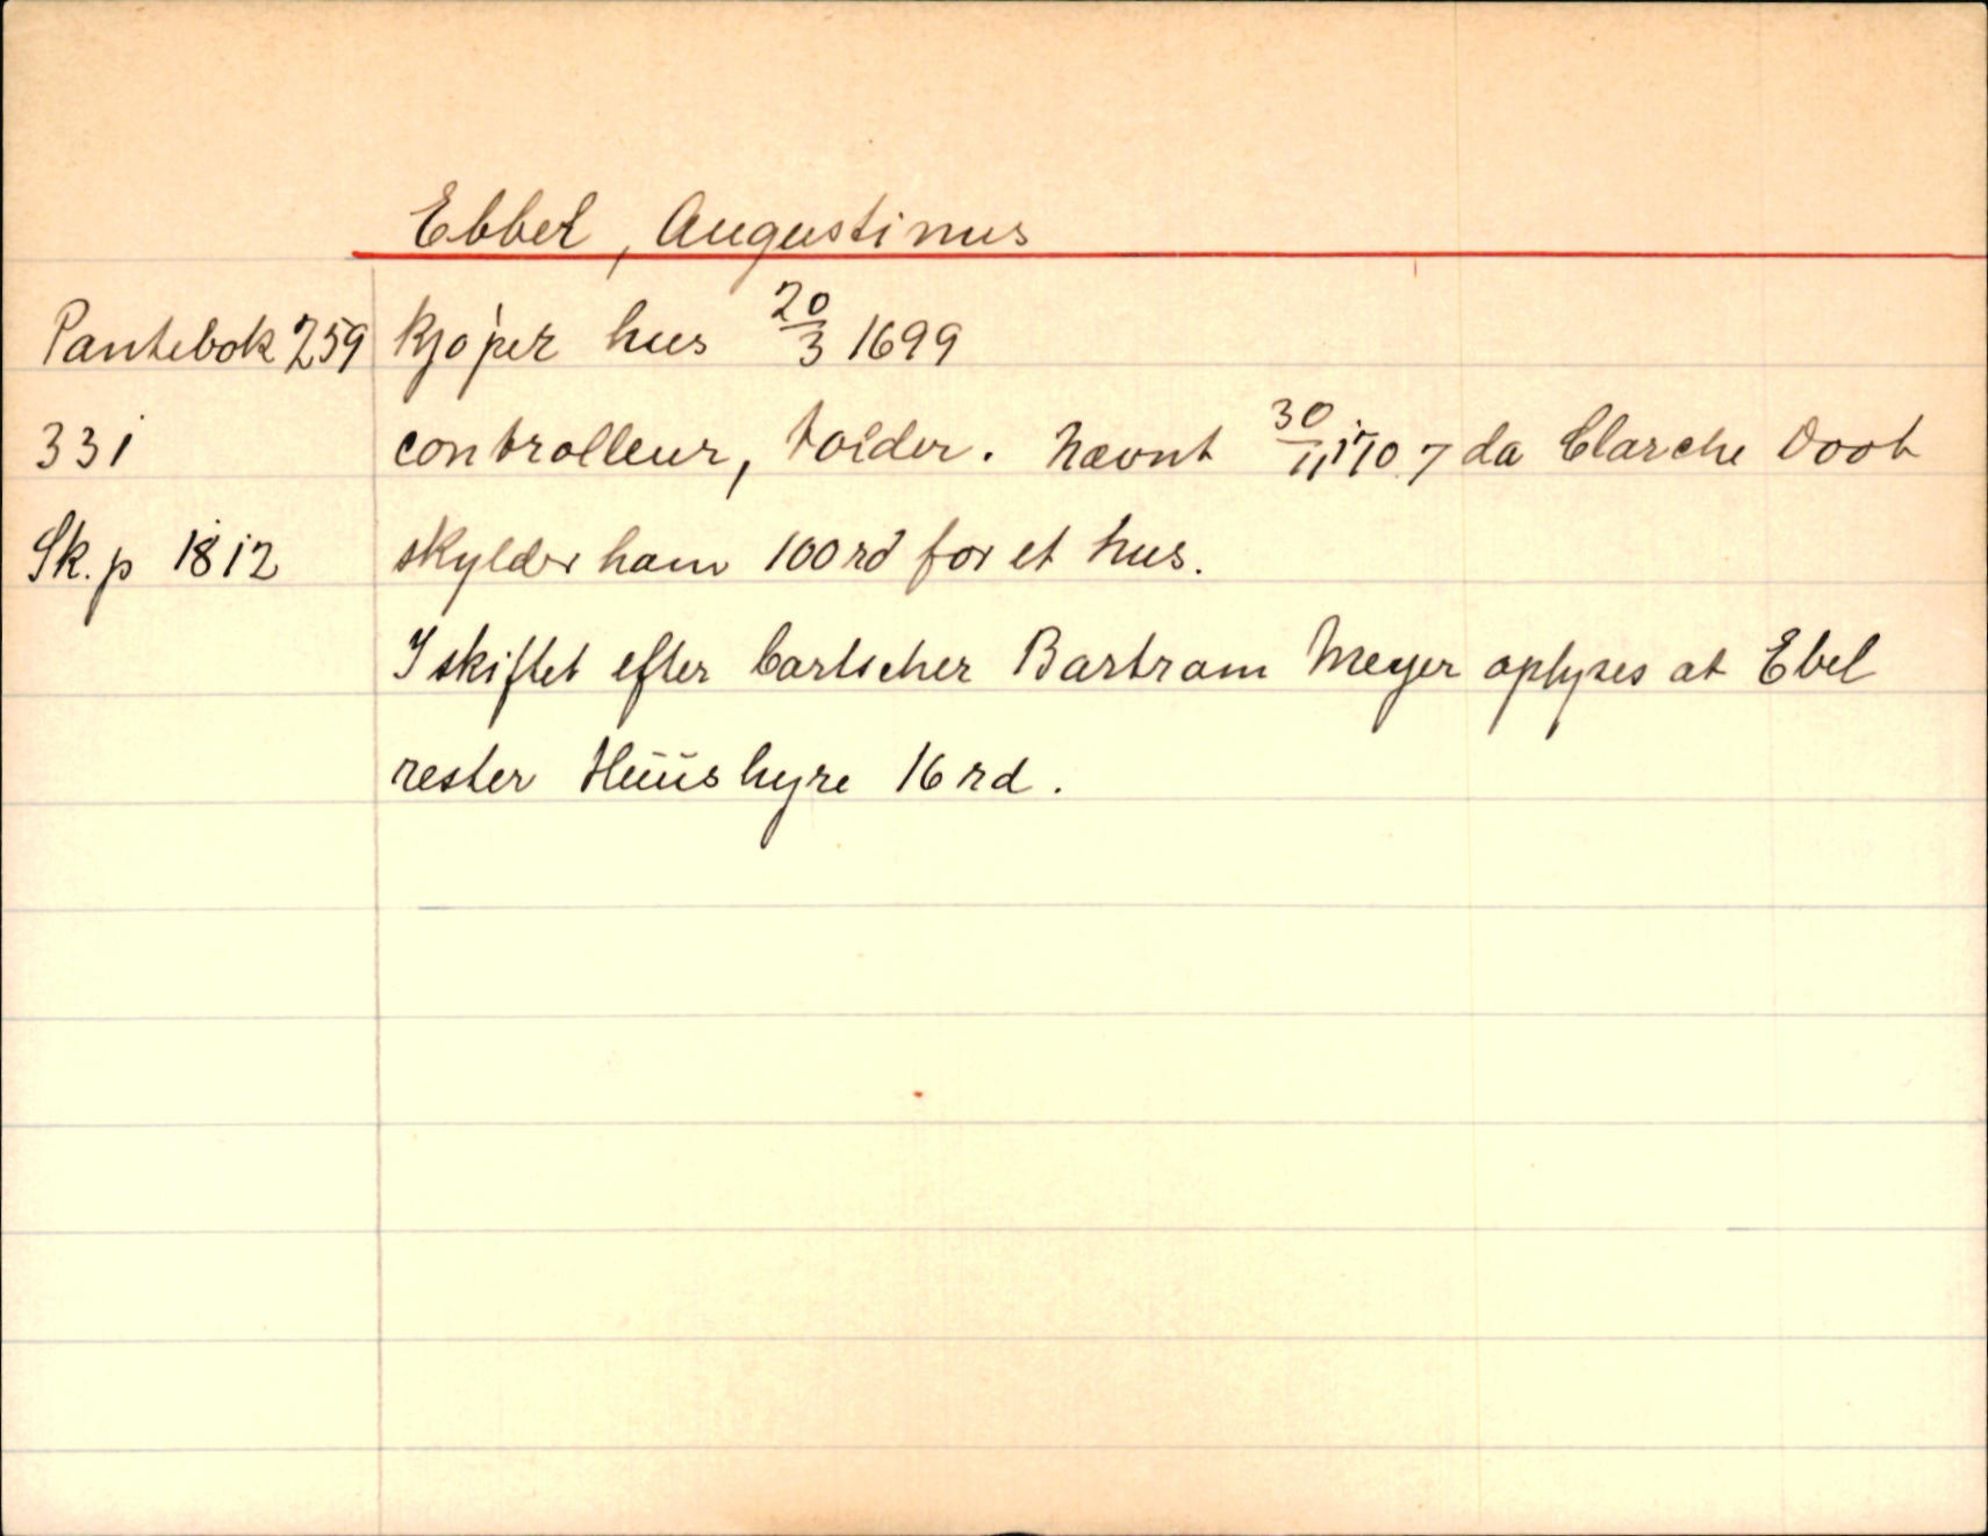 Ebbel, Augustinus
Pantebok 259 kjøper hus 20/3 1699
331 controlleur, tolder. Nævnt 30/11 1707 da Clarche Doot
Sk.p 1812 skylder ham 100 rd for et hus.
I skiftet efter Cartscher Bartram Meyer oplyses at Ebel
rester Hüüshyre 16 rd.